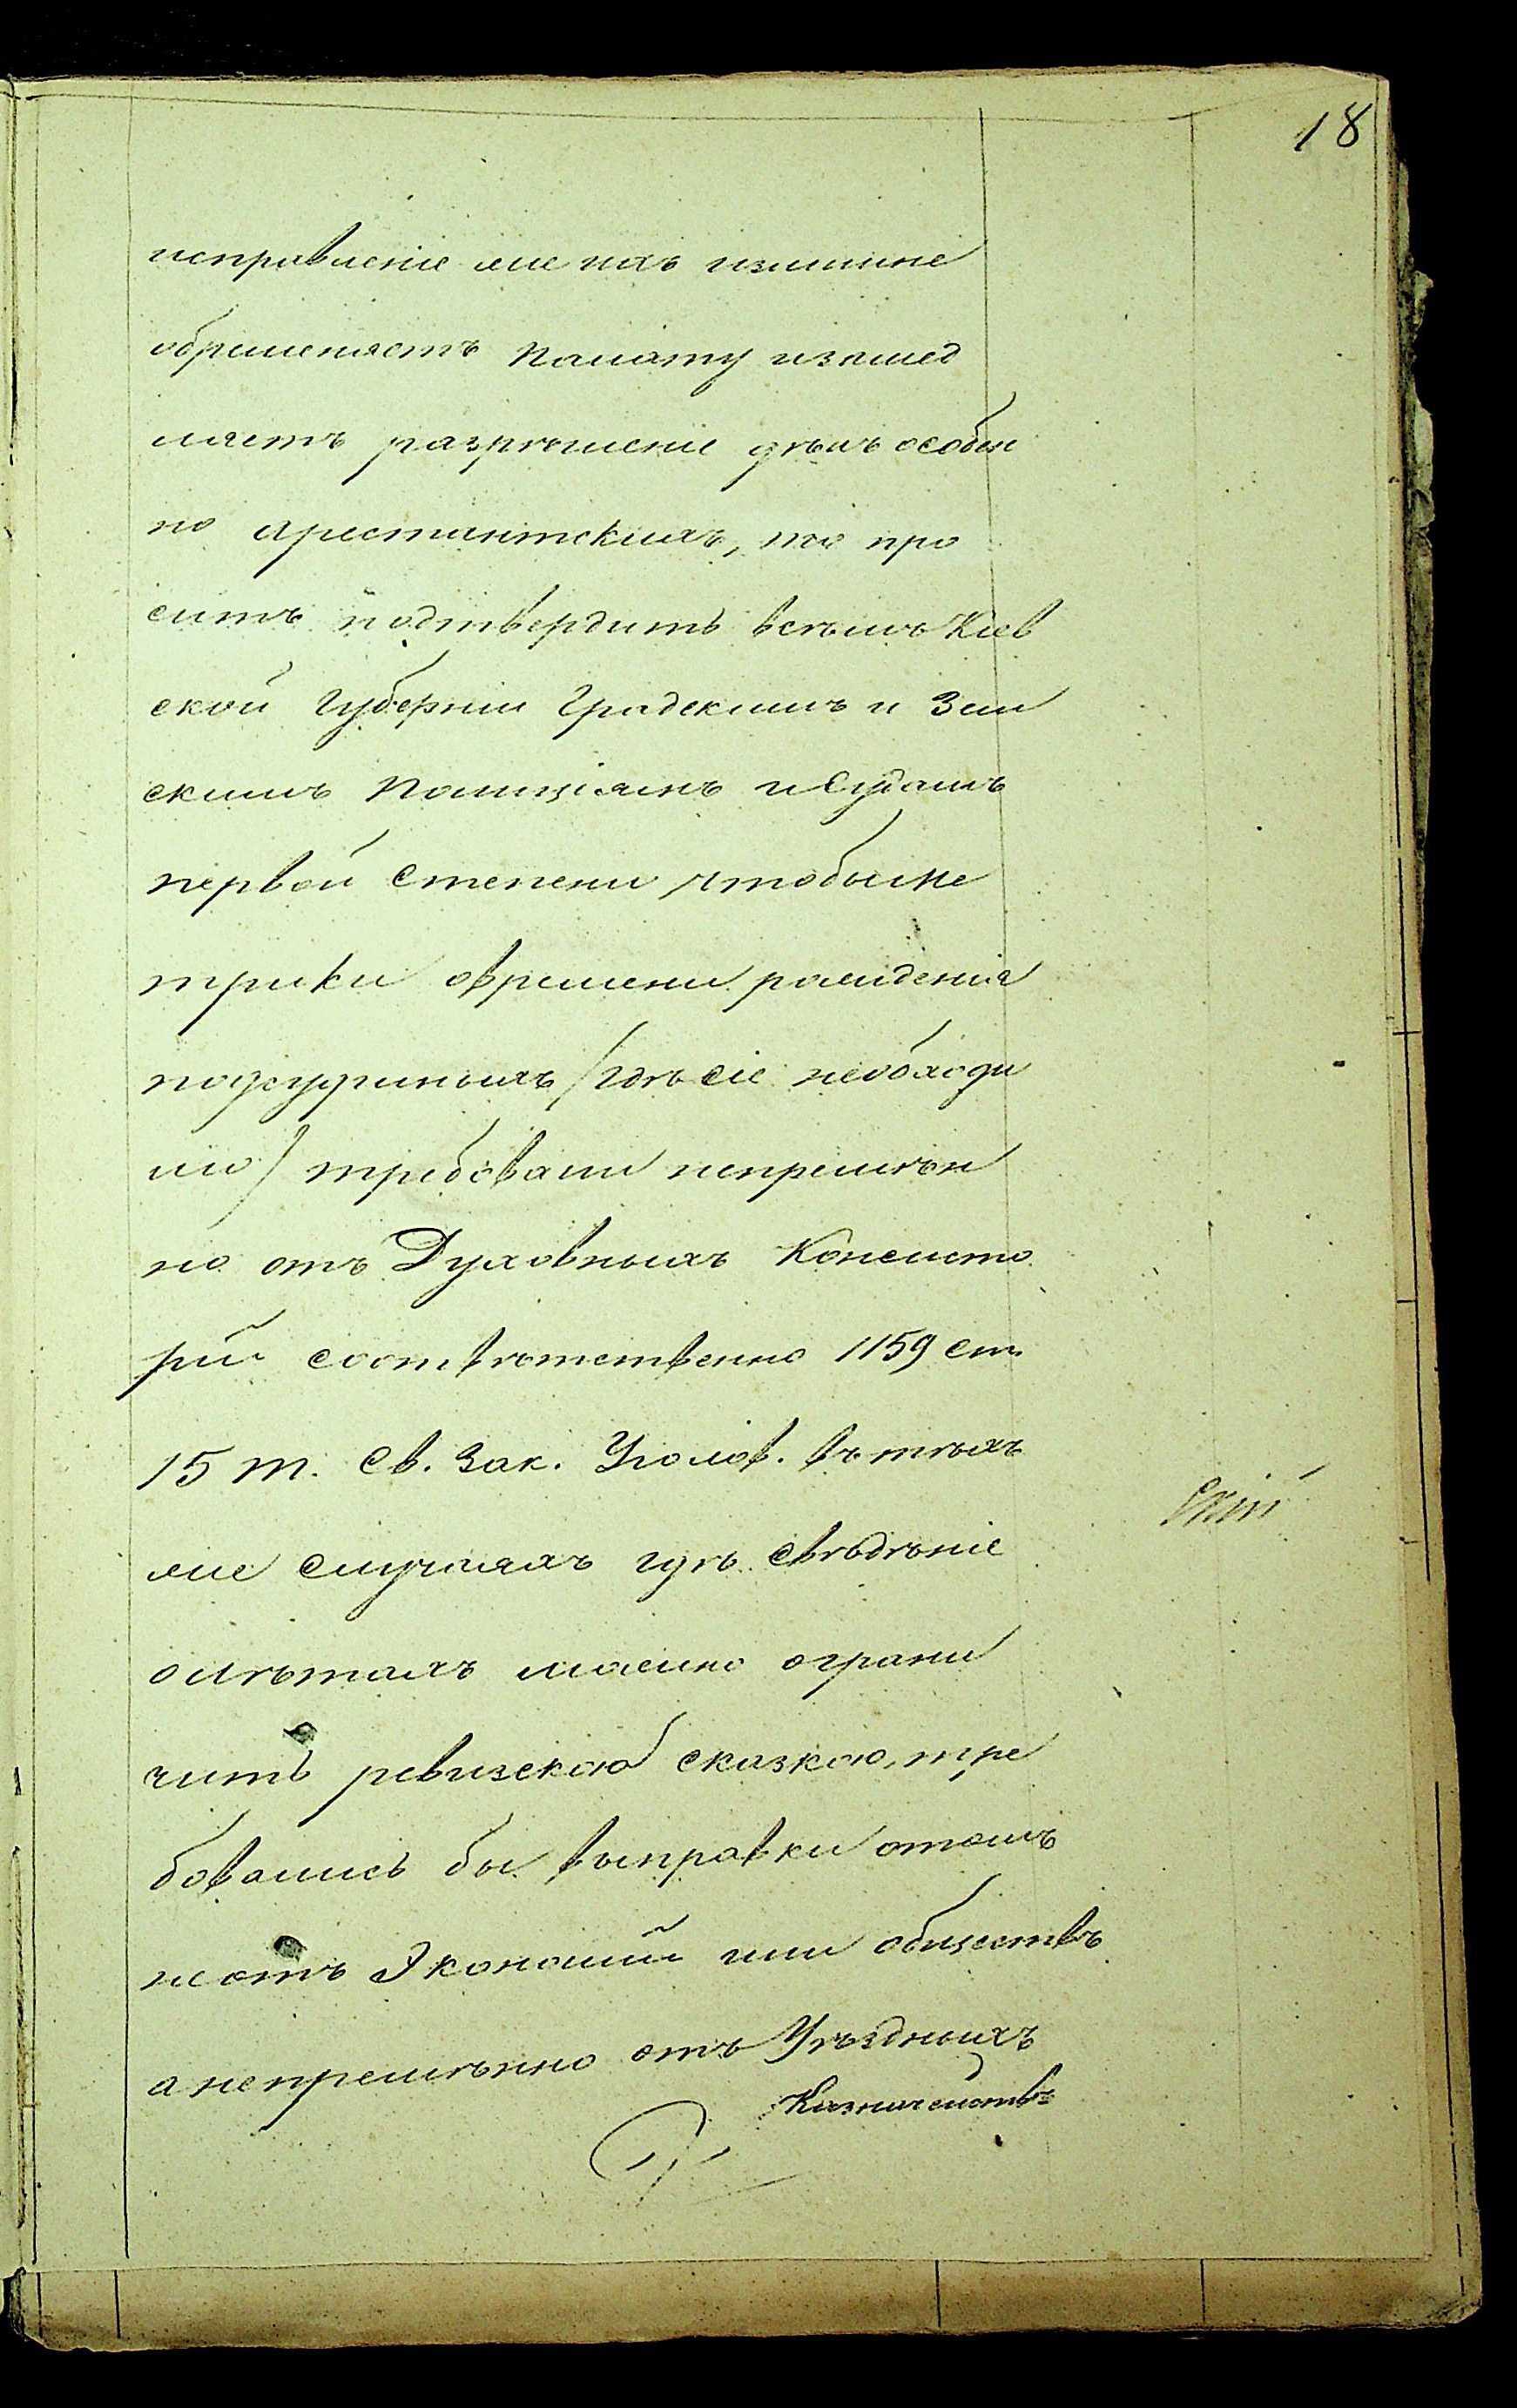 18
исправленіе же ихъ излишне
обременяетъ Палату изамед
ляетъ разрѣшеніе дѣлъ особен
но арестантскихъ, то про
ситъ подтвердить всѣмъ Кіев
ской Губерніи Градскимъ и Зем
скимъ Полиціямъ и Судамъ
первой Степени чтобы ме
трики овремени рожденія
подсудимыхъ /гдѣ сіе необходи
мо/ требовали непремѣн
но отъ Духовныхъ Консисто
рій соотвѣтственно 1159 ст.
15 Т. Св. Зак. Уголов. въ тѣхъ
же Случаяхъ гдѣ свѣдѣніе
олѣтахъ можно ограни
чить ревизскою сказкою, тре
бовались бы выправки отомъ
не отъ Экономій или обществъ
а непремѣнно отъ Уѣздныхъ
Казначействъ